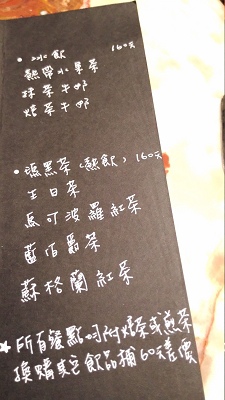 • 冰飲 160元
熱帶水果茶
抹茶牛奶
焙茶牛奶
• 瑪黑茶(熱飲)160元
生日茶
馬可波羅紅茶
藍伯爵茶
蘇格蘭紅茶
★所有餐點均附焙茶或煎茶
換購其它飲品補60元差價